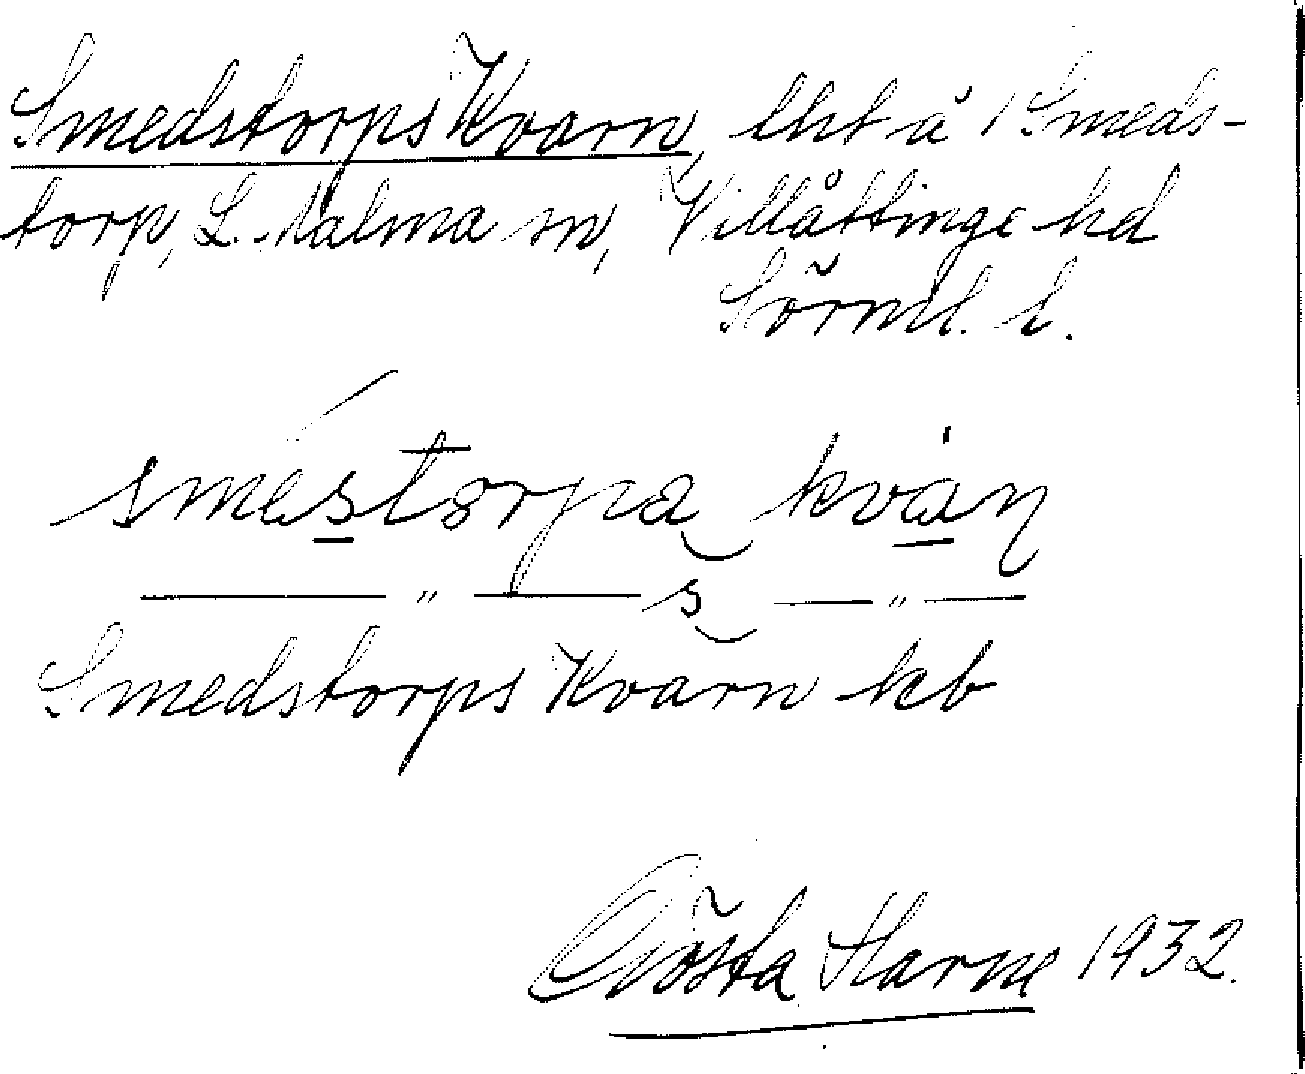 Smedstorps Kvarn, lht å 1 Smeds-
torp, L. Malma sn, Villåttinge hd
Sörml. l.
smés̲tɷrpa‿kvạ̲̈ŋ
—— " —— s‿ — " —
Smedstorps Kvarn kb
Gösta Harne 1932.